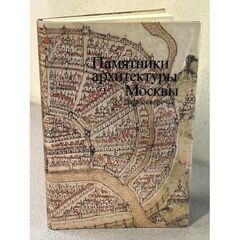 Памятники
архитектуры
Москвы